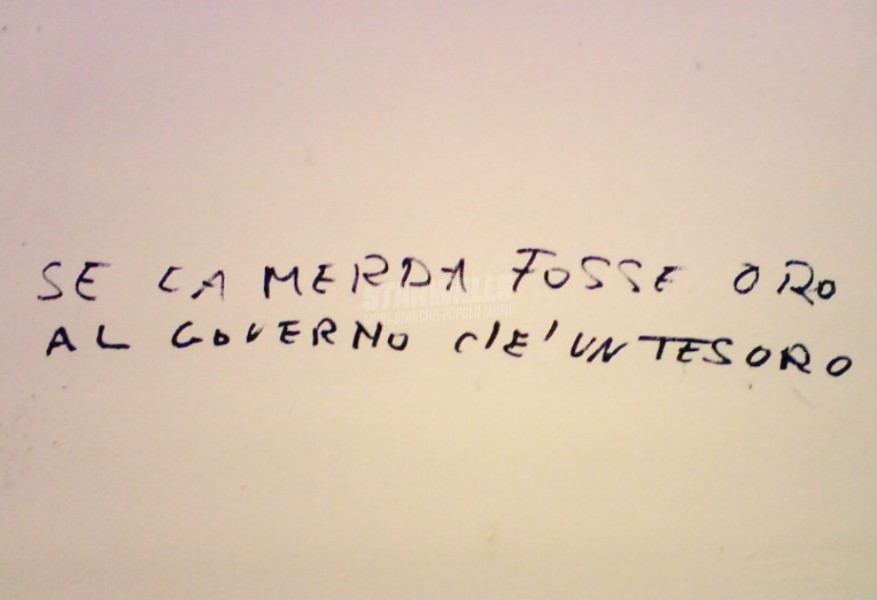 SE LA MERDA FOSSE ORO
AL GOVERNO C'E' UN TESORO
STARWALLS
MURI BIANCHI, POPOLO MUTO